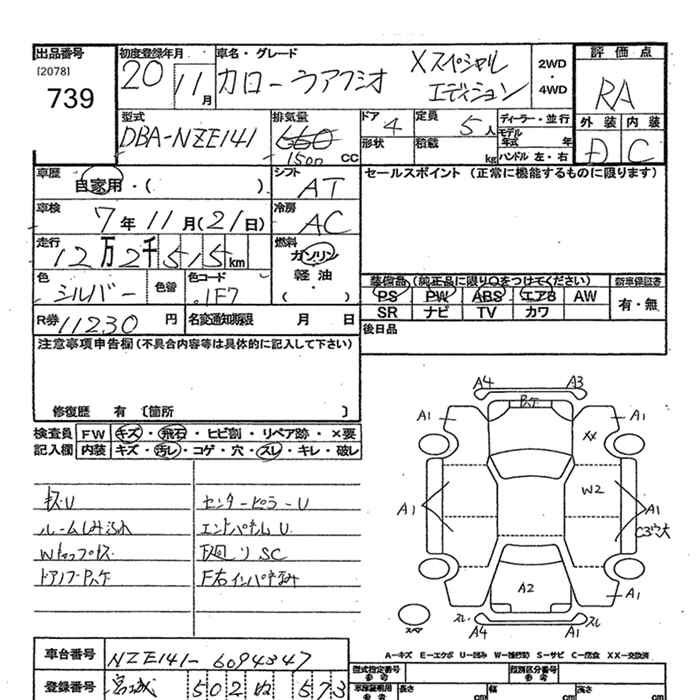 出品番号
[2078]
739
初度登録年月
20 11月
車名・グレード
カローラアクシオ
Xスペシャル
エディション
2WD
・
4WD
評価点
RA
型式
DBA-NZE141
排気量
660
1500 cc
ドア
4
定員
5人
形状
積載
kg
ディーラー・並行
モデル
年式 年
ハンドル 左・右
外装 内装
D C
車歴
自家用・( )
シフト
AT
セールスポイント (正常に機能するものに限ります)
車検
7年11月(21日)
冷房
AC
走行
12万2千515km
燃料
ガソリン
軽油
( )
色
シルバー
色替
色コード
1F7
装備品 (純正品に限り○をつけてください)
新車保証書
PS PW ABS エアB AW
有・無
SR ナビ TV カワ
R券 11230 円
名変通知期限 月 日
後日品
注意事項申告欄(不具合内容等は具体的に記入して下さい)
修復歴 有 〔箇所 〕
検査員 FW キズ・飛石・ヒビ割・リペア跡・×要
記入欄 内装 キズ・汚レ・コゲ・穴・スレ・キレ・破レ
キズU
センターピラーU
ルームしみ汚れ
エンドパネルU
下廻りSC
A4 A3
A1 A1
XX
W2
A1 A1
C3穴大
A2
A1
スレ スレ
A4 A1
スペア
A-キズ E-エクボ U-凹み W-補修跡 S-サビ C-腐食 XX-交換済
車台番号
NZE141-6094347
登録番号
宮城 502 ぬ 573
型式指定番号
参考
類別区分番号
参考
長さ
cm
幅
cm
高さ
cm